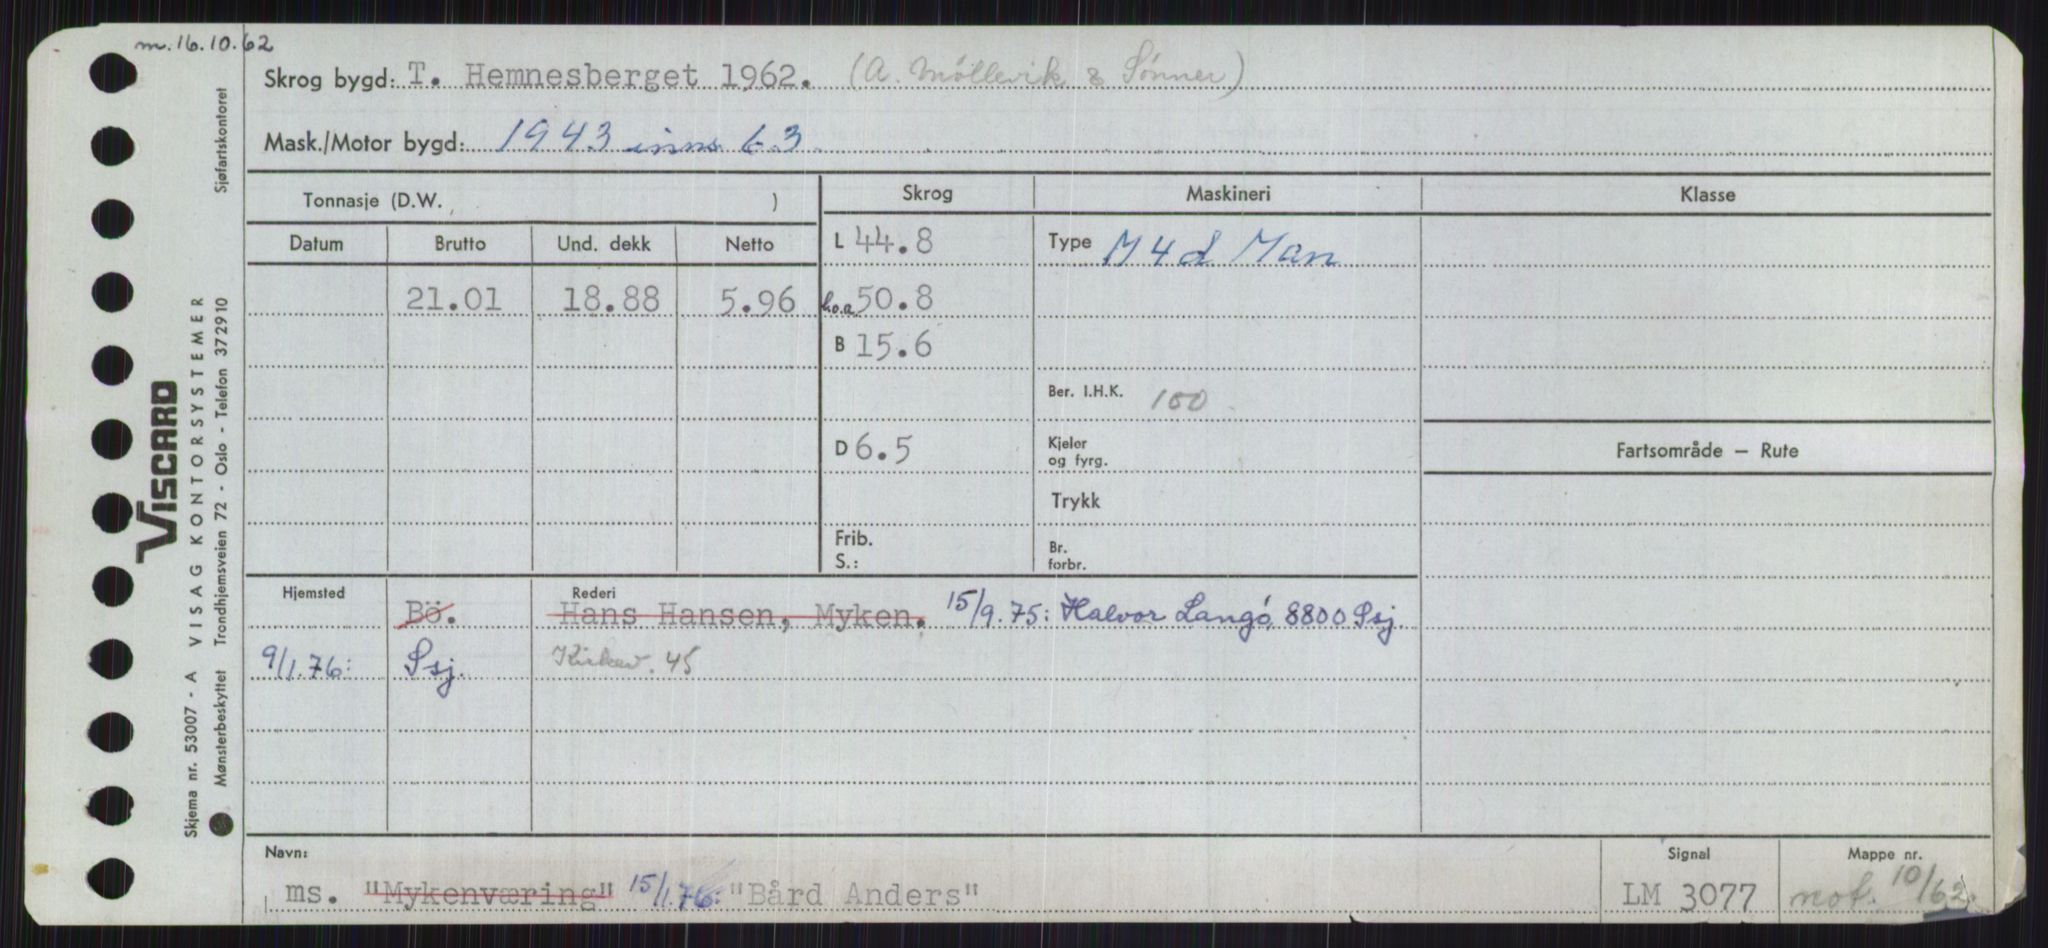 m. 16.10.62
Skrog bygd: T. Hemnesberget 1962. (A. Möllevik & Sönner)
Mask./Motor bygd: 1943 inns. 63.
Tonnasje (D.W. )
Skrog Maskineri Klasse
Datum Brutto Und. dekk Netto
L 44.8 Type M 4 d Man
21.01 18.88 5.96 l.o.a 50.8
B 15.6
Ber. I.H.K. 100
D 6.5 Kjeler og fyrg.
Fartsområde — Rute
Trykk
Frib.
S.:
Br. forbr.
Hjemsted Rederi
Bö. Hans Hansen, Myken. 15/9.75: Halvor Langö, 8800 Ssj.
9/1.76: Ssj. Kirkev. 45
Navn: Signal Mappe nr.
ms. "Mykenværing" 15/1.76: "Bård Anders" LM 3077 not. 10/62.
VISCARD
Skjema nr. 53007 - A VISAG KONTORSYSTEMER
Mønsterbeskyttet Trondhjemsveien 72 - Oslo - Telefon 372910 Sjøfartskontoret